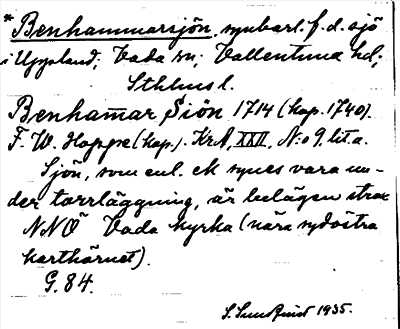 *Benhammarsjön, synbarl. f. d. sjö
i Uppland; Vada sn; Vallentuna hd;
Sthlms l.
Benham̅ar Siön 1714 (kop. 1740).
F. W. Hoppe (kop.). KrA, XXII, N:o 9. lit. a.
Sjön, som enl. ek synes vara un-
der torrläggning, är belägen strax
NNÖ Vada kyrka (nära sydöstra
karthörnet).
G. 84.
S. Sundquist 1935.